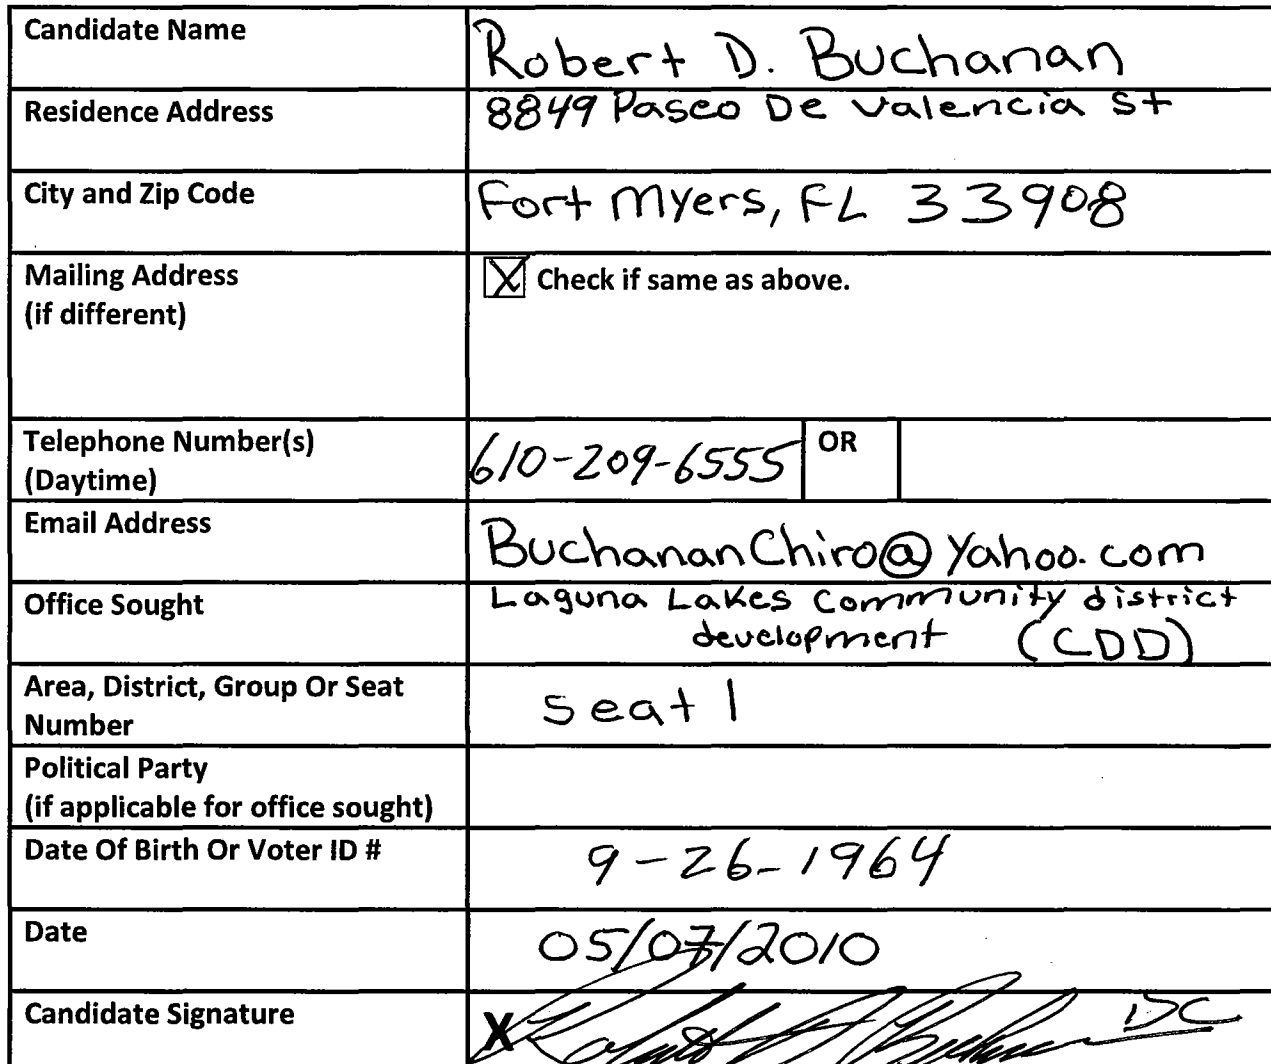 Candidate Name
Robert D. Buchanan
Residence Address
8849 Paseo De Valencia St
City and Zip Code
Fort Myers, FL 33908
Mailing Address
(if different)
X Check if same as above.
Telephone Number(s)
(Daytime)
610-209-6555
OR
Email Address
BuchananChiro@Yahoo.com
Office Sought
Laguna Lakes Community district
development (CDD)
Area, District, Group Or Seat
Number
Seat 1
Political Party
(if applicable for office sought)
Date Of Birth Or Voter ID #
9-26-1964
Date
05/07/2010
Candidate Signature
X Robert D Buchanan DC